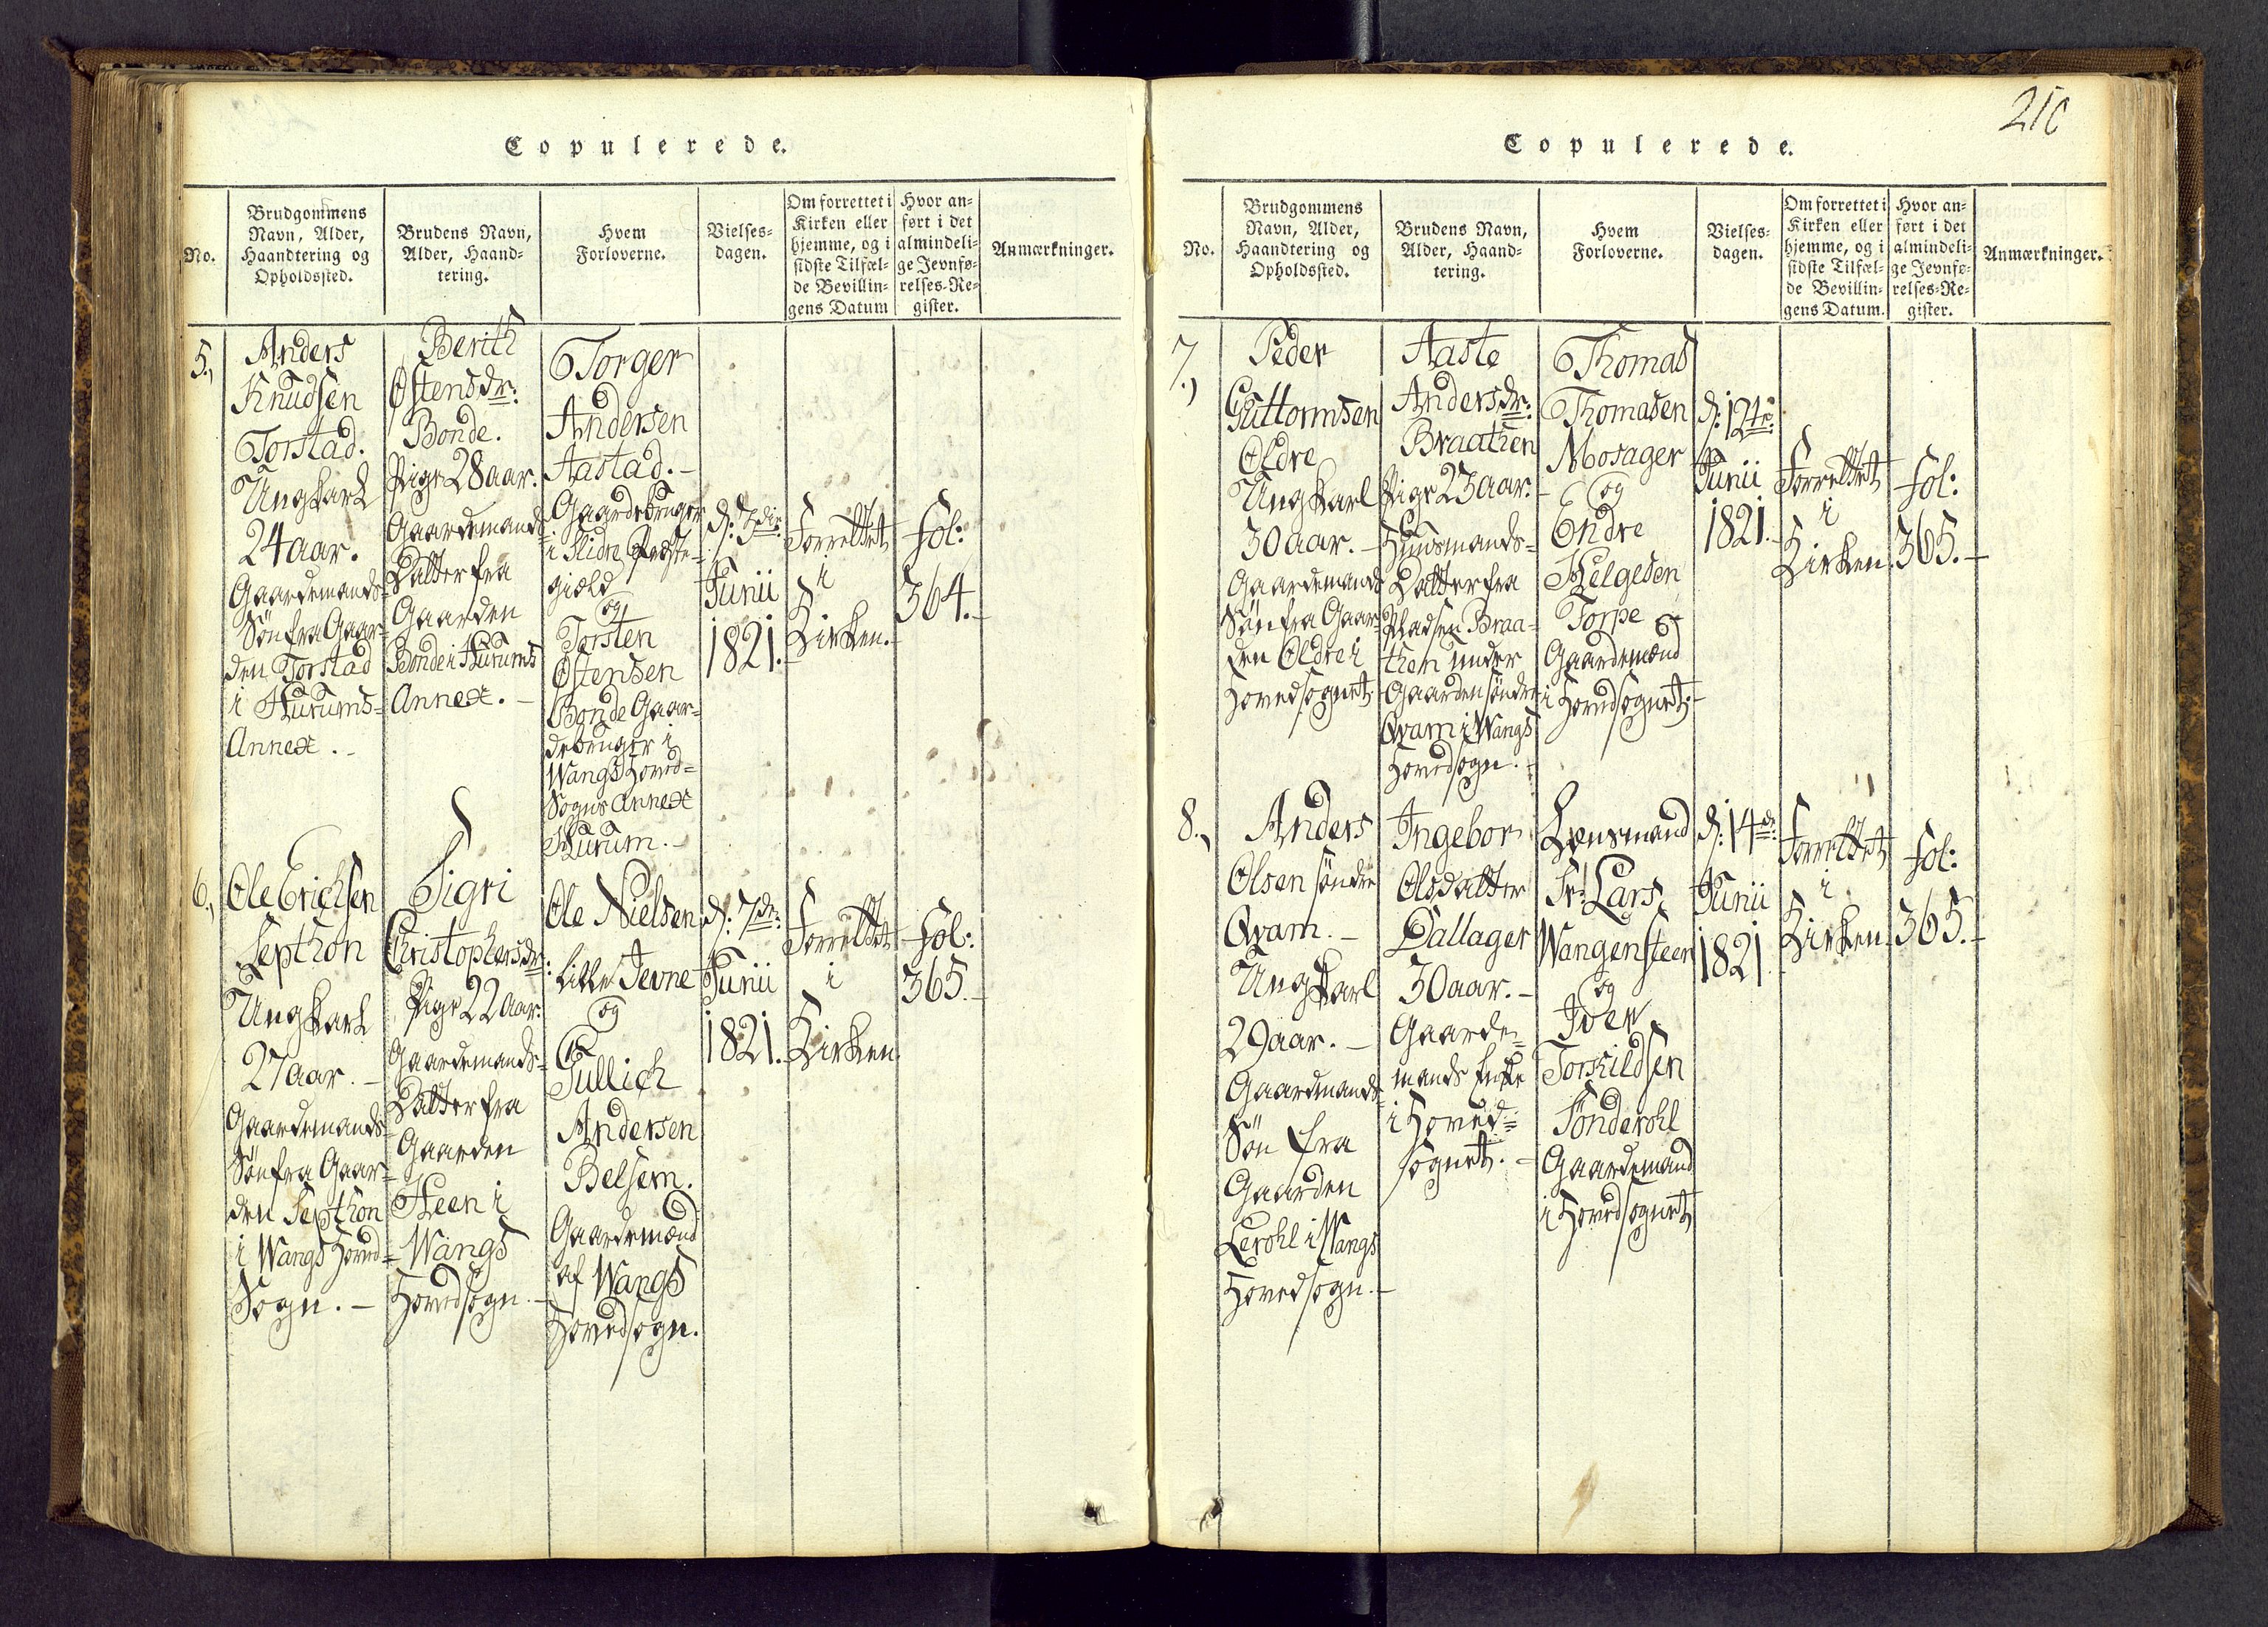 Copulerede.
No.
Brudgommens
Navn, Alder,
Haandtering og
Opholdssted.
Brudens Navn,
Alder, Haand-
tering.
Hvem
Forloverne.
Vielses-
dagen.
Om forrettet i
Kirken eller
hjemme, og i
sidste Tilfæl-
de Bevillin-
gens Datum
Hvor an-
ført i det
almindeli-
ge Jevnfø-
relses-Re-
gister.
Anmærkninger.
5.,
Anders
Knudsen
Torstad.
Ungkarl
24 aar.
Gaardemands-
Søn fra Gaar-
den Torstad
i Hurums-
Annex. -
Berith
Østensdr:
Bonde.
Pige 28 aar.
Gaardemands
Datter fra
Gaarden
Bonde i Hurums
Annex. -
Torger
Andersen
Aastad. -
Gaardebruger
i Slidre Præste-
gjæld
og
Torsten
Østensen
Bonde Gaar-
debruger i
Wangs Hoved-
Sogns Annex
Hurum. -
d: 7de
Junii
1821. -
Forrettet
i
Kirken. -
fol:
364. -
6.,
Ole Erichsen
Septhon
Ungkarl
27 aar. -
Gaardemands-
Søn fra Gaar-
den Septhon
i Wangs Hoved-
Sogn. -
Sigri
Christophersdr:
Pige 22 aar.
Gaardemands-
Datter fra
Gaarden
Heen i
Wangs
Hovedsogn. -
Ole Nielsen
lille Jevne
og
Gullich
Andersen
Belsem.
Gaardemænd
af Wangs
Hovedsogn.
d: 7de:
Junii
1821.
Forrettet
i
Kirken
fol:
365. -
210
Copulerede.
No.
Brudgommens
Navn, Alder,
Haandtering og
Opholdssted.
Brudens Navn,
Alder, Haand-
tering.
Hvem
Forloverne.
Vielses-
dagen.
Om forrettet i
Kirken eller
hjemme, og i
sidste Tilfæl-
de Bevillin-
gens Datum.
Hvor an-
ført i det
almindeli-
ge Jevnfø-
relses-Re-
gister.
Anmærkninger.
7.,
Peder
Guttormsen
Øldre
Ungkarl
30 aar. -
Gaardemands
Søn fra Gaar-
den Øldre i
Hovedsognet.
Aaste
Andersdr:
Braathen
Pige 23 aar. -
Huusmands-
Datter fra
Pladsen Braa-
then under
Gaarden søndre
Qvam i Wangs
Hovedsogn. -
Thomas
Thomasen
Mosager
og
Endre
Helgesen
Torpe
Gaardemænd
i Hovedsognet. -
d: 12te:
Junii
1821. -
Forrettet
i
Kirken.
fol:
365. -
8.,
Anders
Olsen søndre
Qvam. -
Ungkarl
29 aar. -
Gaardmands
Søn fra
Gaarden
Lerohl i Wangs
Hovedsogn. -
Ingebor
Olsdatter
Dallager
30 aar. -
Gaarde-
mands Enke
i Hoved-
sognet. -
Lensmand
Sr: Lars
Wangensteen
og
Iver
Torkildsen
Sønderohl
Gaardemænd
i Hovedsognet
d: 14de:
Junii
1821.
Forrettet
i
Kirken.
fol:
365. -